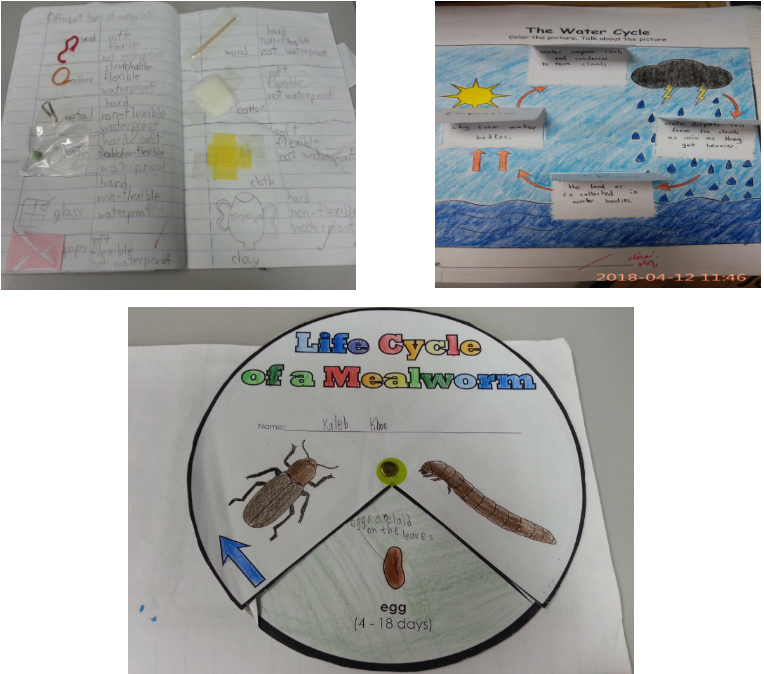 Different types of materials
soft
flexible
not waterproof
stretchable
flexible
waterproof
metal
hard
non-flexible
waterproof
hard/soft
waterproof
glass
hard
non-flexible
waterproof
soft
flexible
not waterproof
wood
hard
non-flexible
not waterproof
cotton
soft
flexible
not waterproof
cloth
soft
flexible
not waterproof
clay
hard
non-flexible
waterproof
The Water Cycle
Color the picture. Talk about the picture
water vapour cools
and condenses
to form clouds.
sky from water
bodies.
Water droplets fall
from the clouds
as rain as they
get heavier.
the land or
is collected in
water bodies.
2018-04-12 11:46
Life Cycle
of a Mealworm
Name: Kaleb Khoo
eggs are laid
on the leaves
egg
(4 - 18 days)